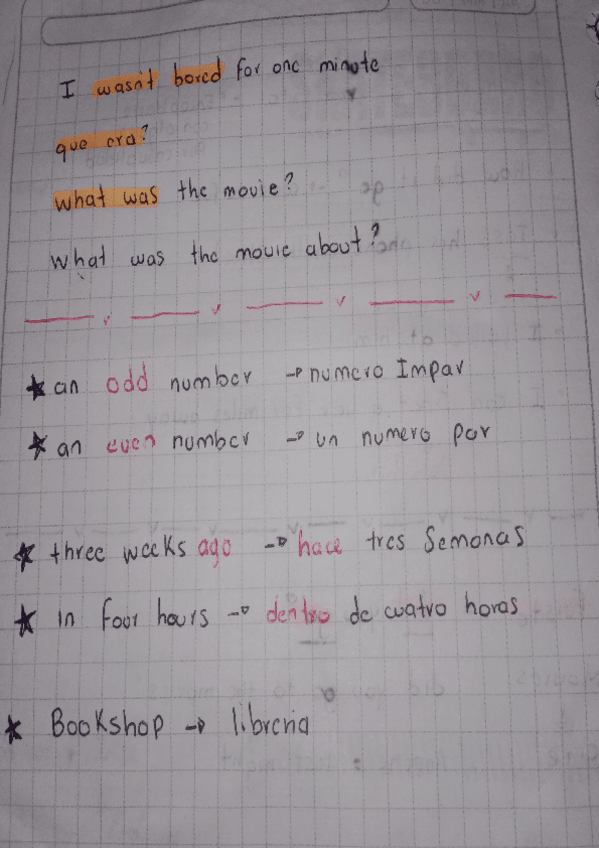 I wasn't bored for one minute
que era?
what was the movie?
What was the movie about?
an odd number → numero Impar
an even number → un numero par
three weeks ago → hace tres Semanas
in four hours → dentro de cuatro horas
Bookshop → libreria